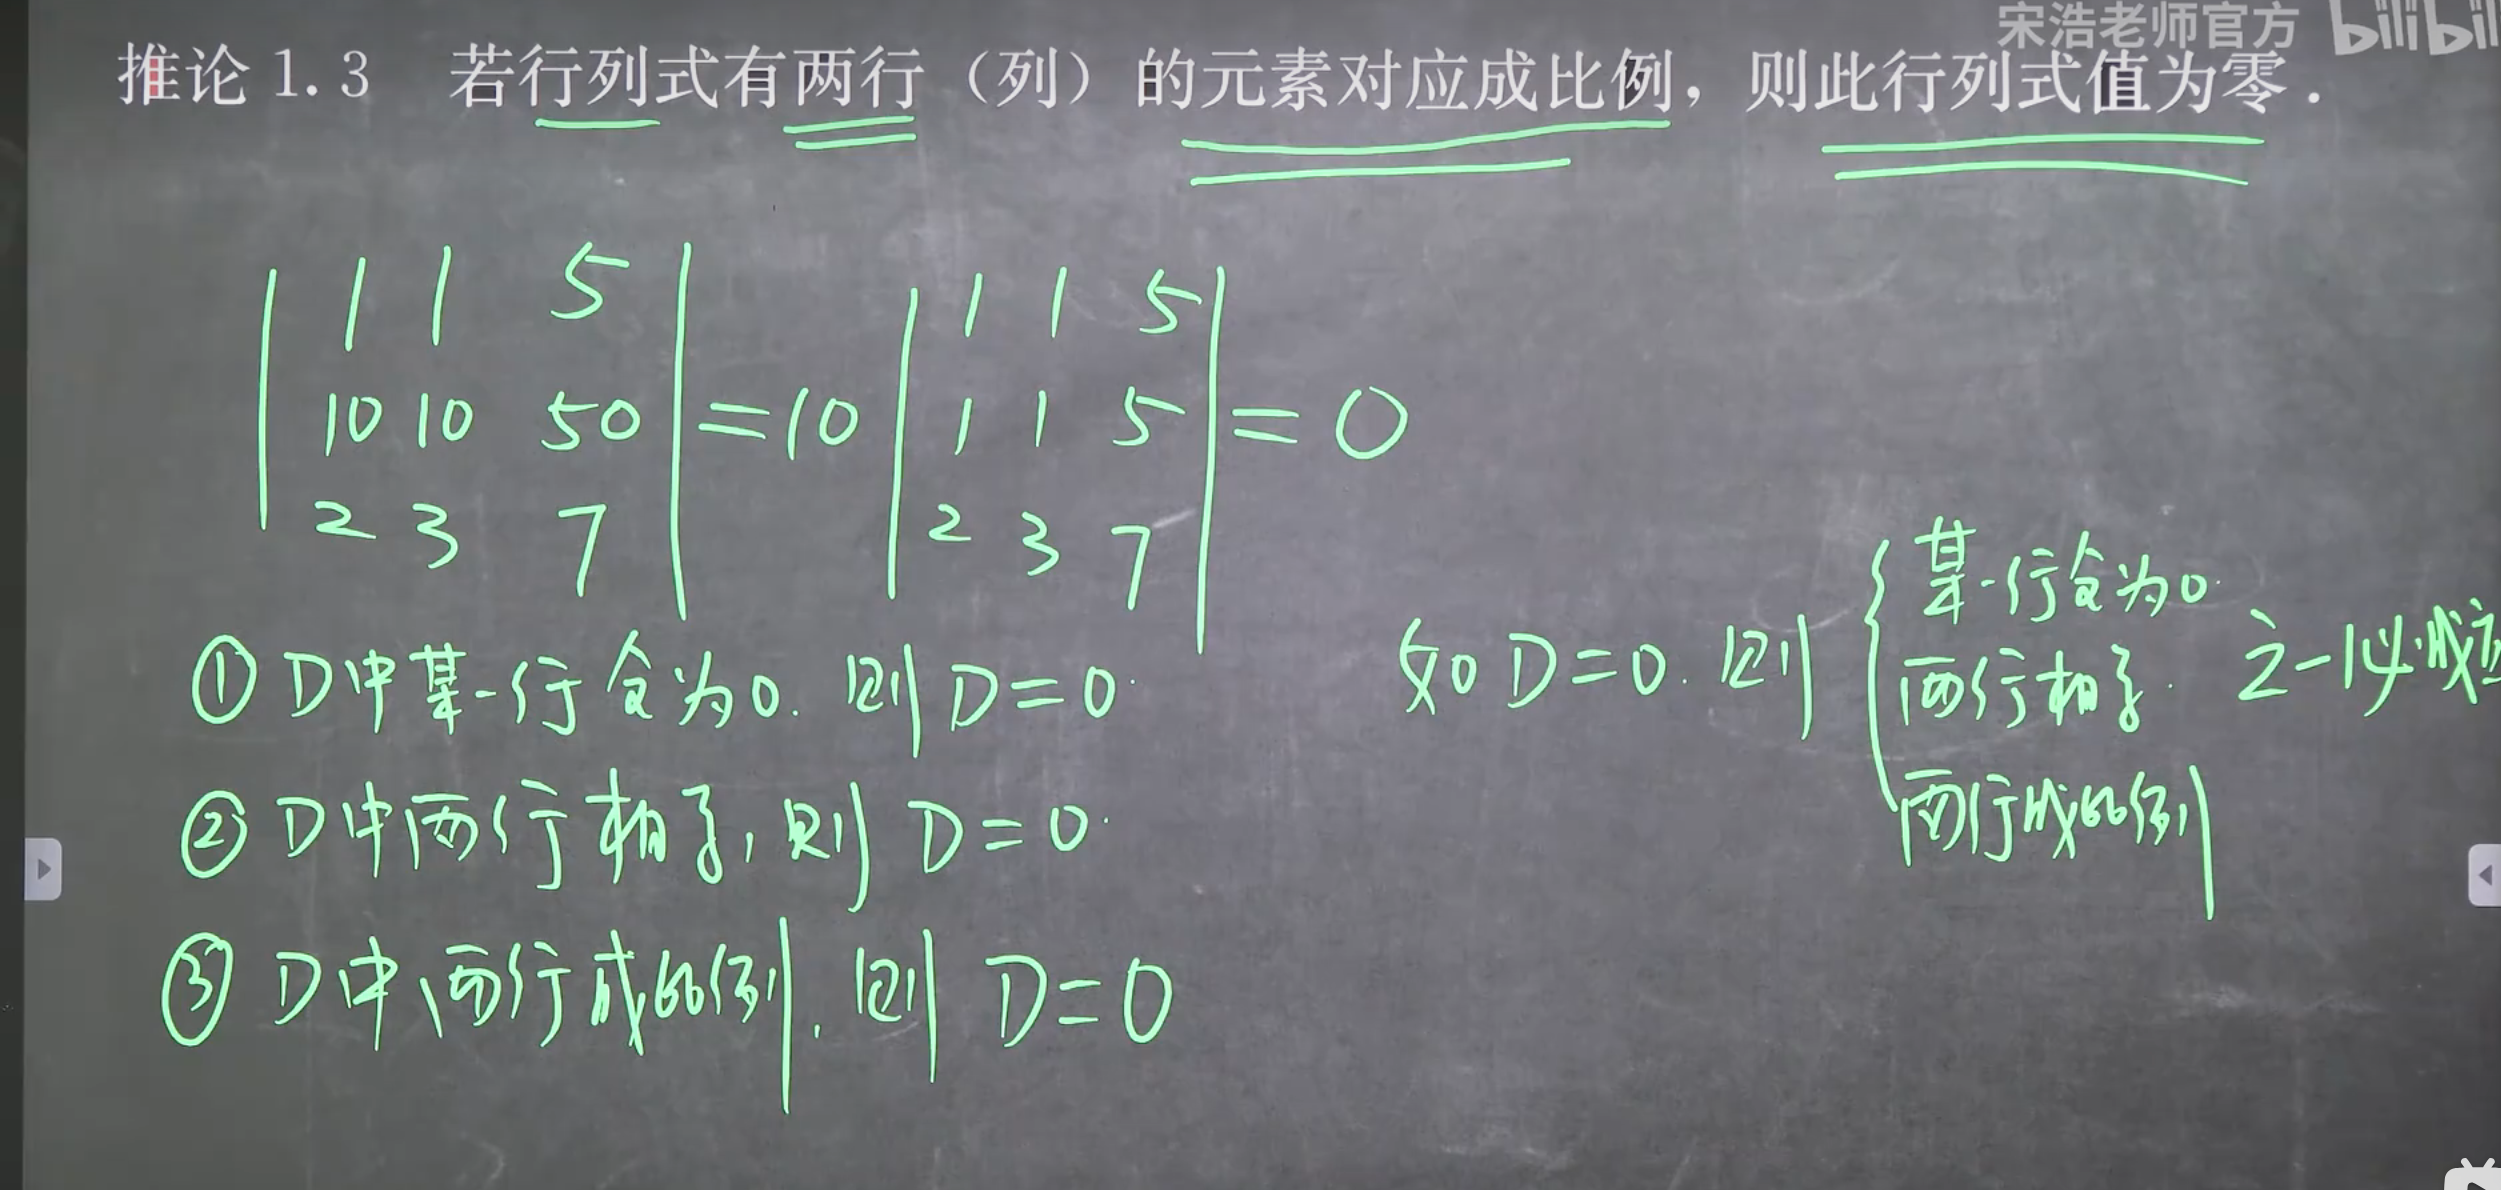 宋浩老师官方 bilibil
推论 1.3 若行列式有两行（列）的元素对应成比例，则此行列式值为零.
1 1 5
10 10 50
2 3 7
= 10
1 1 5
1 1 5
2 3 7
= 0
① D中某一行全为0. 则 D=0.
② D中两行相等, 则 D=0.
③ D中两行成比例. 则 D=0
如 D=0. 则
某一行全为0.
两行相等.
两行成比例
必成立